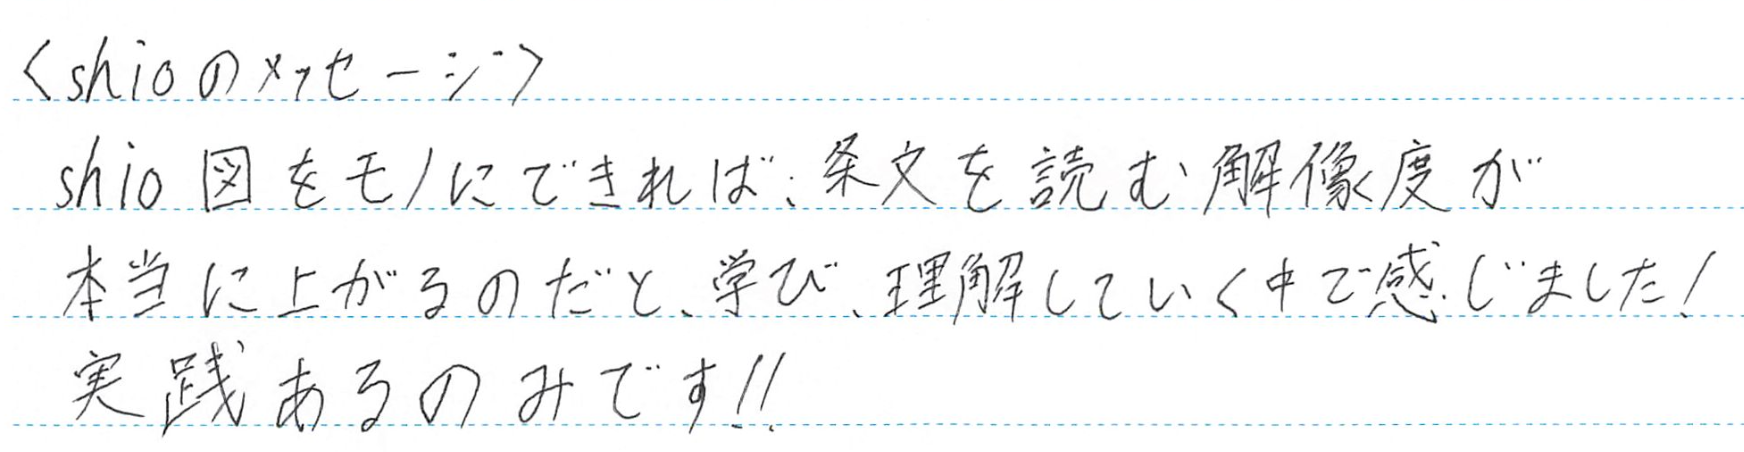 〈shioのメッセージ〉
shio図をモノにできれば、条文を読む解像度が
本当に上がるのだと、学び、理解していく中で感じました！
実践あるのみです!!